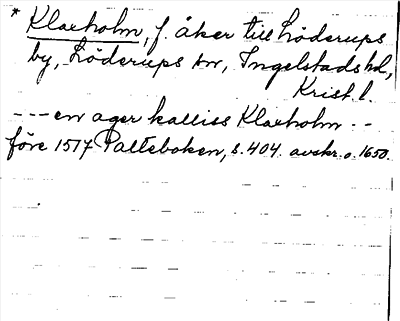 * Klaxholm, f. åker till Löderups
by, Löderups sn, Ingelstads hd,
Krist. l.
--- en ager kalliss Klaxholm --
före 1517 Palteboken, s. 404. avskr. o. 1650.